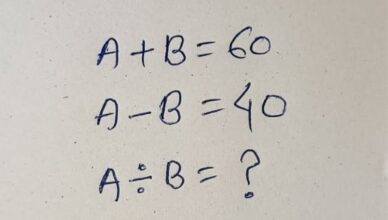 A+B=60
A-B=40
A÷B=?